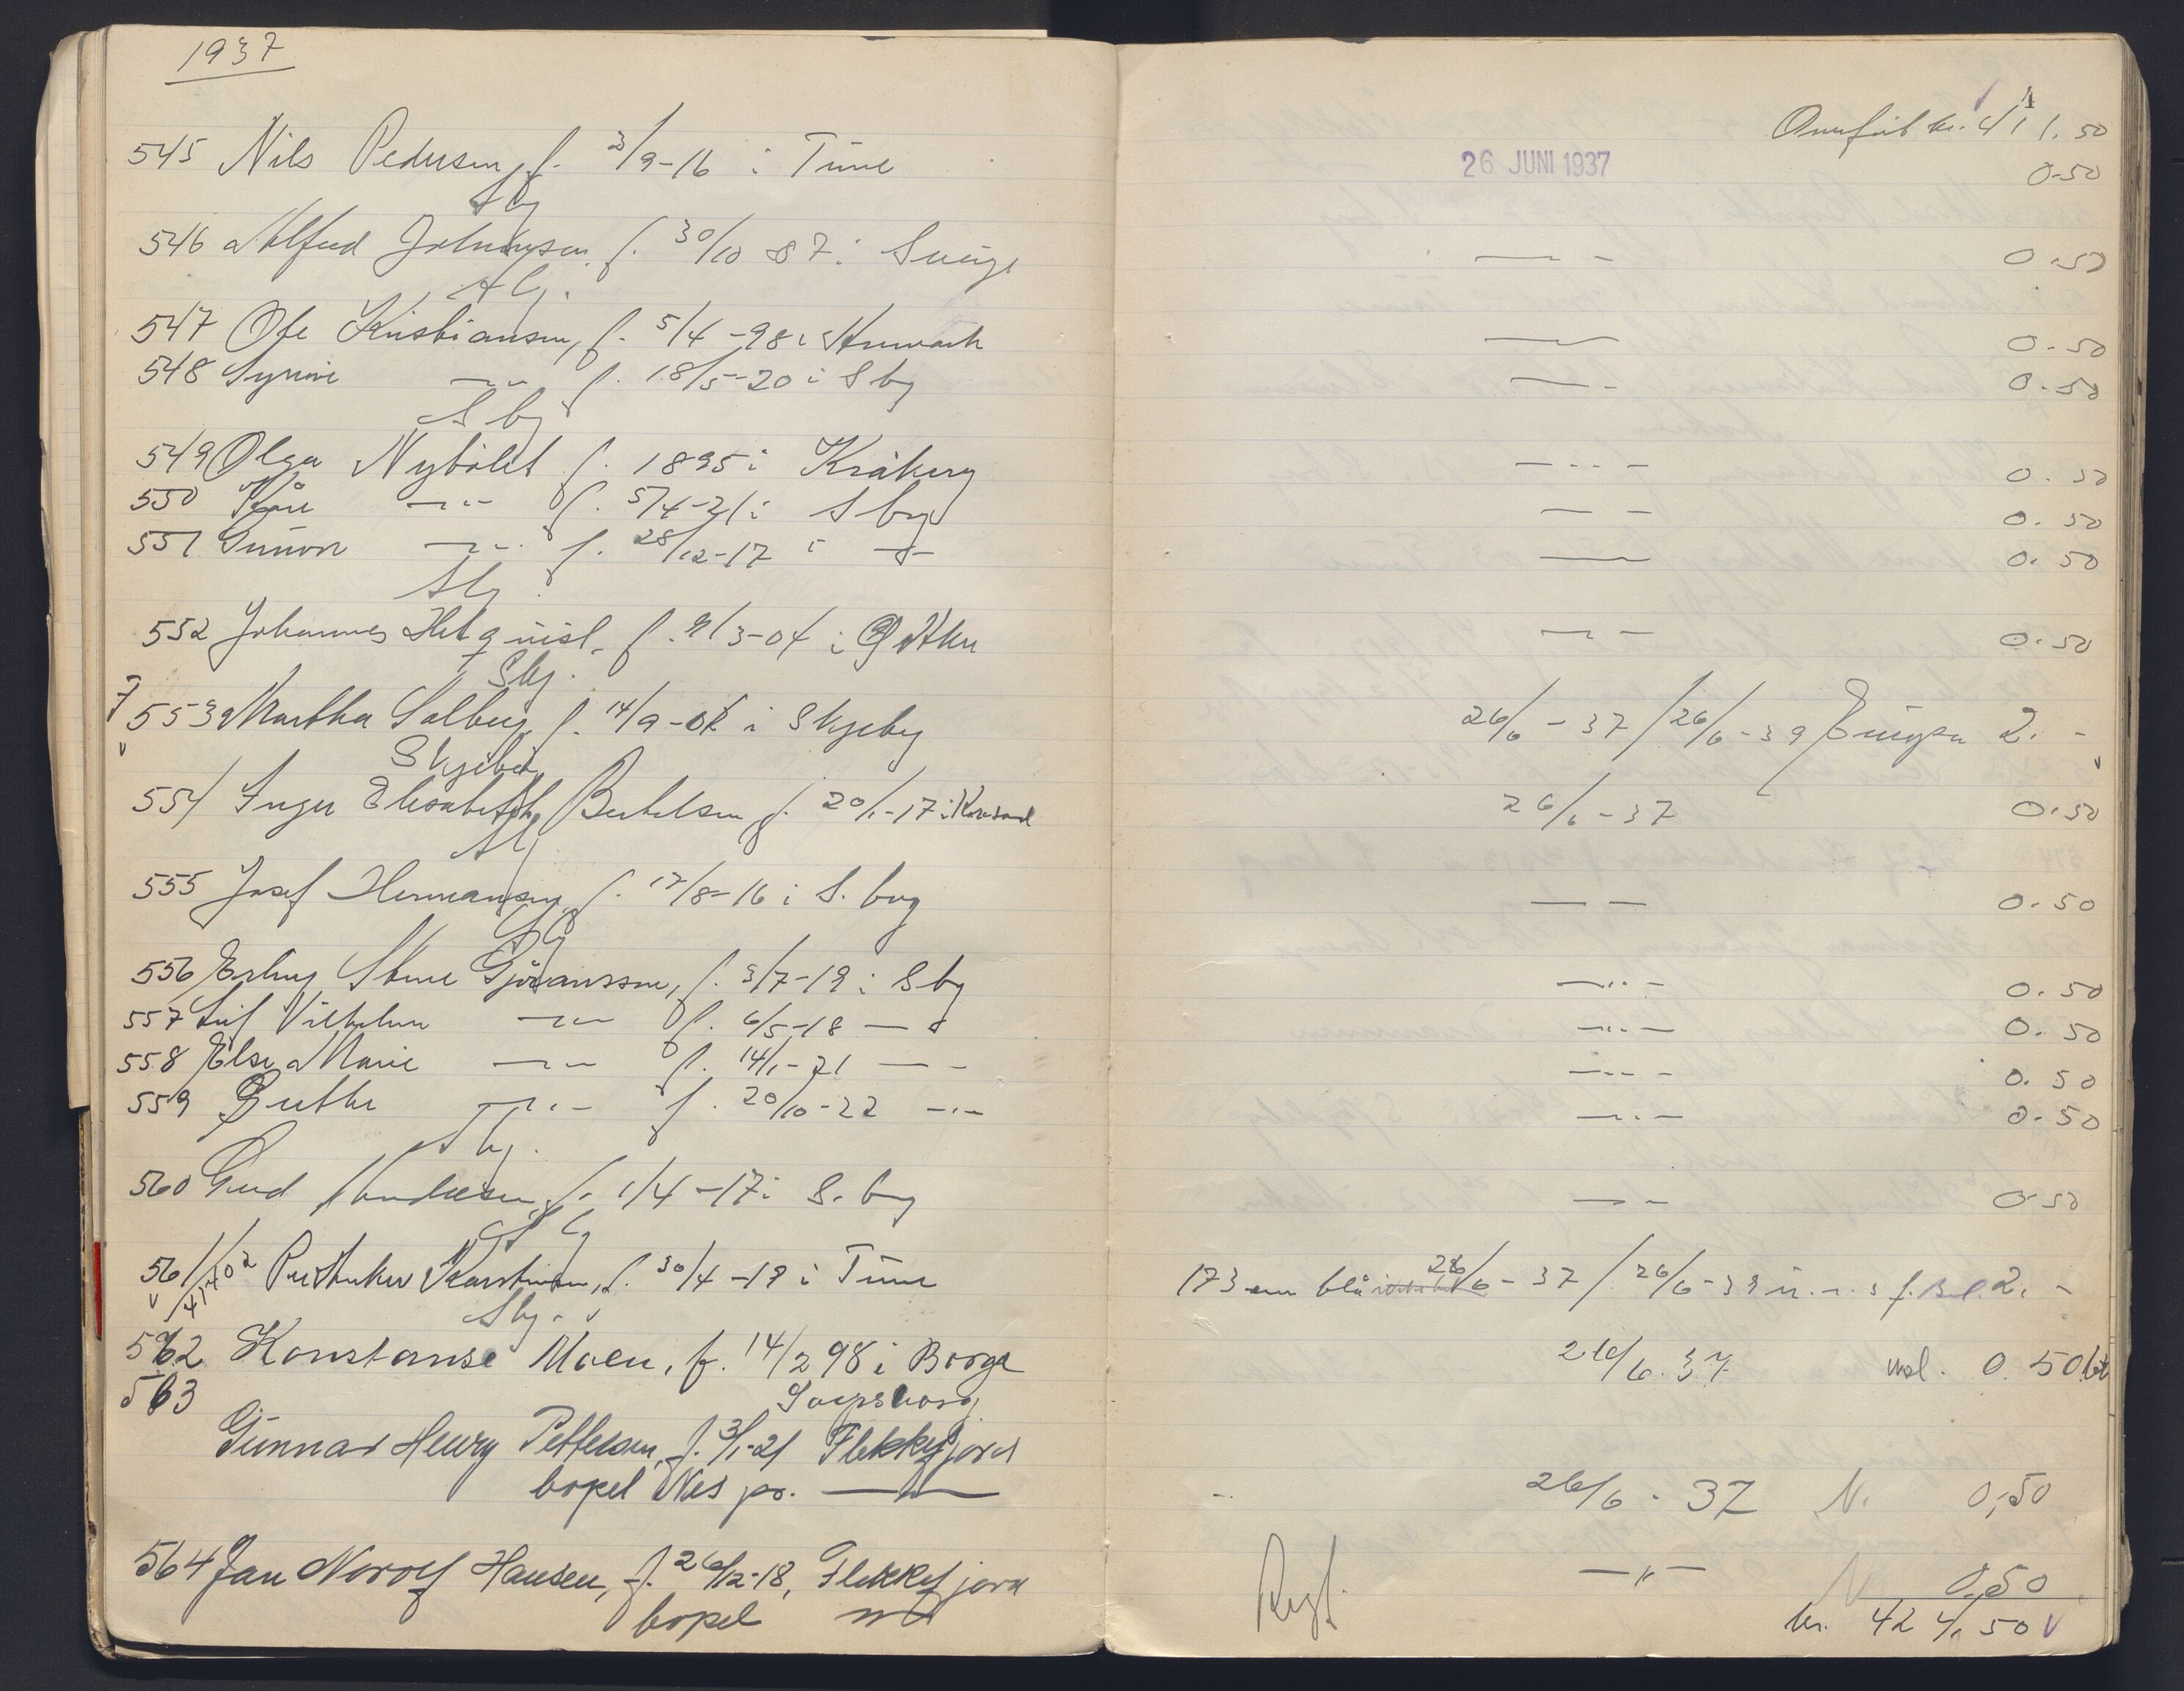 1937
545 Nils Pedersen, f. 3/9-16 i Tune
Sbg
546 Alfred Johansen, f. 30/10 87 i Sverige
Sbg.
547 Ole Kristiansen, f. 5/4-98 i
548 Synnve —"— f. 18/5-20 i Sbg
Sbg
549 Olga Nybölet f. 1895 i Kråkerøy
550 Kåre —"— f. 5/4-21 i Sbrg
551 Gunvor —"— f. 28/12-17 i —"—
Sbg.
552 Johannes f. 9/3-04 i
Sbg.
553 Martha Solberg, f. 14/9-04 i Skjeberg
Skjeberg
554 Inger Elisabeth Bertelsen, f. 20/1-17 i
Sbg
555 Josef Hermansen, f. 17/8-16 i S.borg
Sbg
556 Erling Sture Gjöransson, f. 3/7-19 i Sbg
557 Leif Vilhelm —"— f. 6/5-18 —"—
558 Else Marie —"— f. 14/1-21 —"—
559 Berthe —"— f. 20/10-22 —"—
Sbg.
560 Gerd f. 1/4-17 i S.borg
Sbg
561 f. 30/4-19 i Tune
Sbg.
562 Konstanse Moen, f. 14/2 98 i Borge
Sarpsborg
563
Gunnar Henry Pettersen, f. 3/1-21 Flekkefjord
bopel Nes pr. —"—
564 Jan Norolf Hansen, f. 26/2-18, Flekkefjord
bopel —"—
Overført kr. 411.50
26 JUNI 1937 0.50
—"— 0.50
—"— 0.50
—"— 0.50
—"— 0.50
—"— 0.50
—"— 0.50
—"— 0.50
26/6-37/26/6-39 Europa 2.-
26/6-37 0.50
—"— 0.50
—"— 0.50
—"— 0.50
—"— 0.50
—"— 0.50
—"— 0.50
173 cm blå 26/6-37/26/6-39 2.-
26/6.37 0.50
26/6-37 N. 0,50
—"— N 0,50
Regf.
kr. 424,50